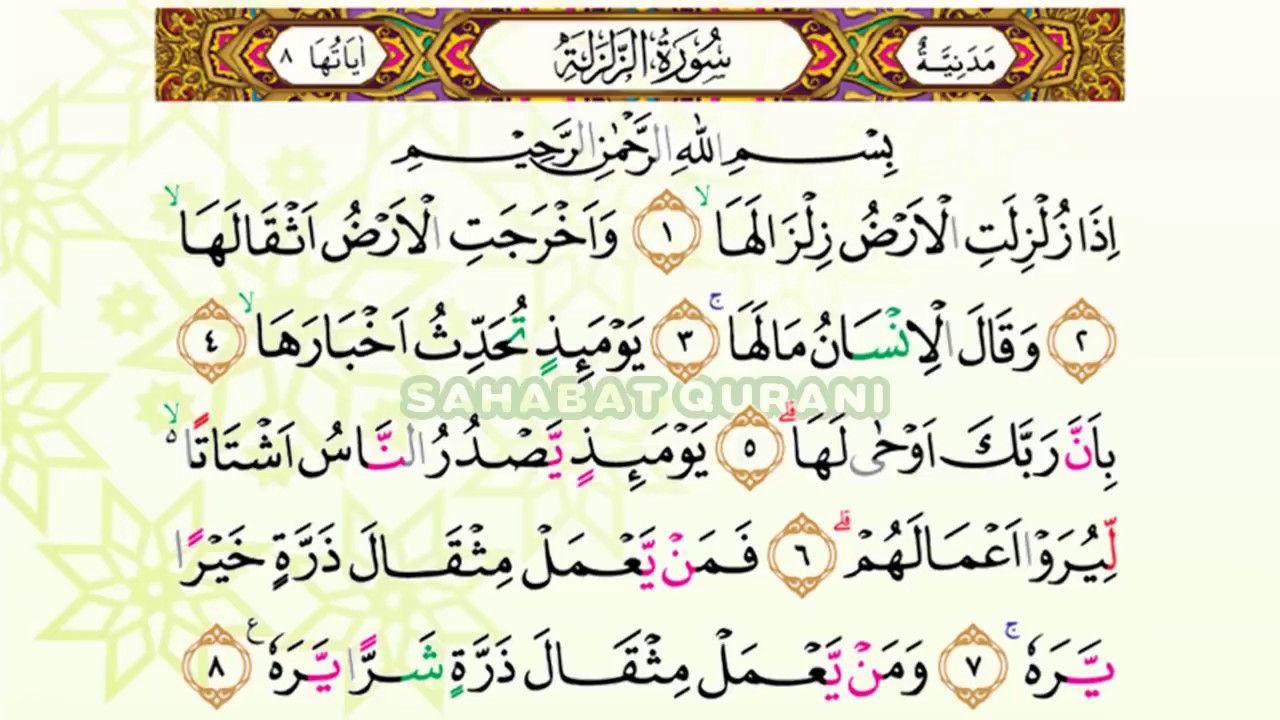 مَدَنِيَّةٌ سُوْرَةُ الزَّلْزَلَةِ اٰيَاتُهَا ٨
بِسْمِ اللّٰهِ الرَّحْمٰنِ الرَّحِيْمِ
اِذَا زُلْزِلَتِ الْاَرْضُ زِلْزَالَهَاۙ ١ وَاَخْرَجَتِ الْاَرْضُ اَثْقَالَهَاۙ
٢ وَقَالَ الْاِنْسَانُ مَا لَهَاۚ ٣ يَوْمَئِذٍ تُحَدِّثُ اَخْبَارَهَاۙ ٤
SAHABAT QURANI
بِاَنَّ رَبَّكَ اَوْحٰى لَهَاۗ ٥ يَوْمَئِذٍ يَّصْدُرُ النَّاسُ اَشْتَاتًا ەۙ
لِّيُرَوْا اَعْمَالَهُمْۗ ٦ فَمَنْ يَّعْمَلْ مِثْقَالَ ذَرَّةٍ خَيْرًا
يَّرَهٗۚ ٧ وَمَنْ يَّعْمَلْ مِثْقَالَ ذَرَّةٍ شَرًّا يَّرَهٗ ع ٨